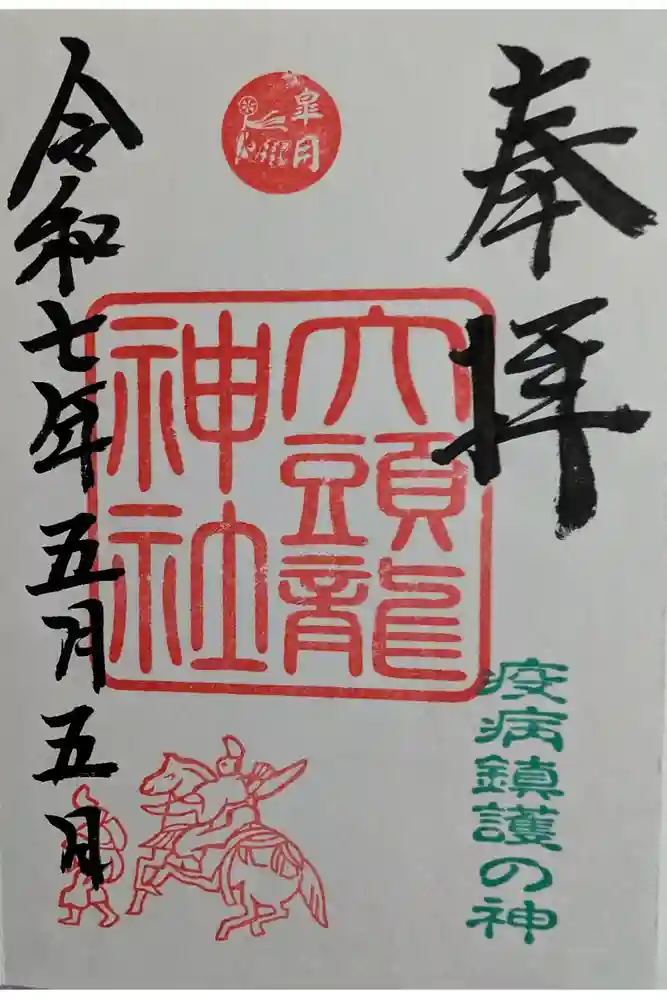 奉拝
疫病鎮護の神
皐月
大頭龍
神社
令和七年五月五日